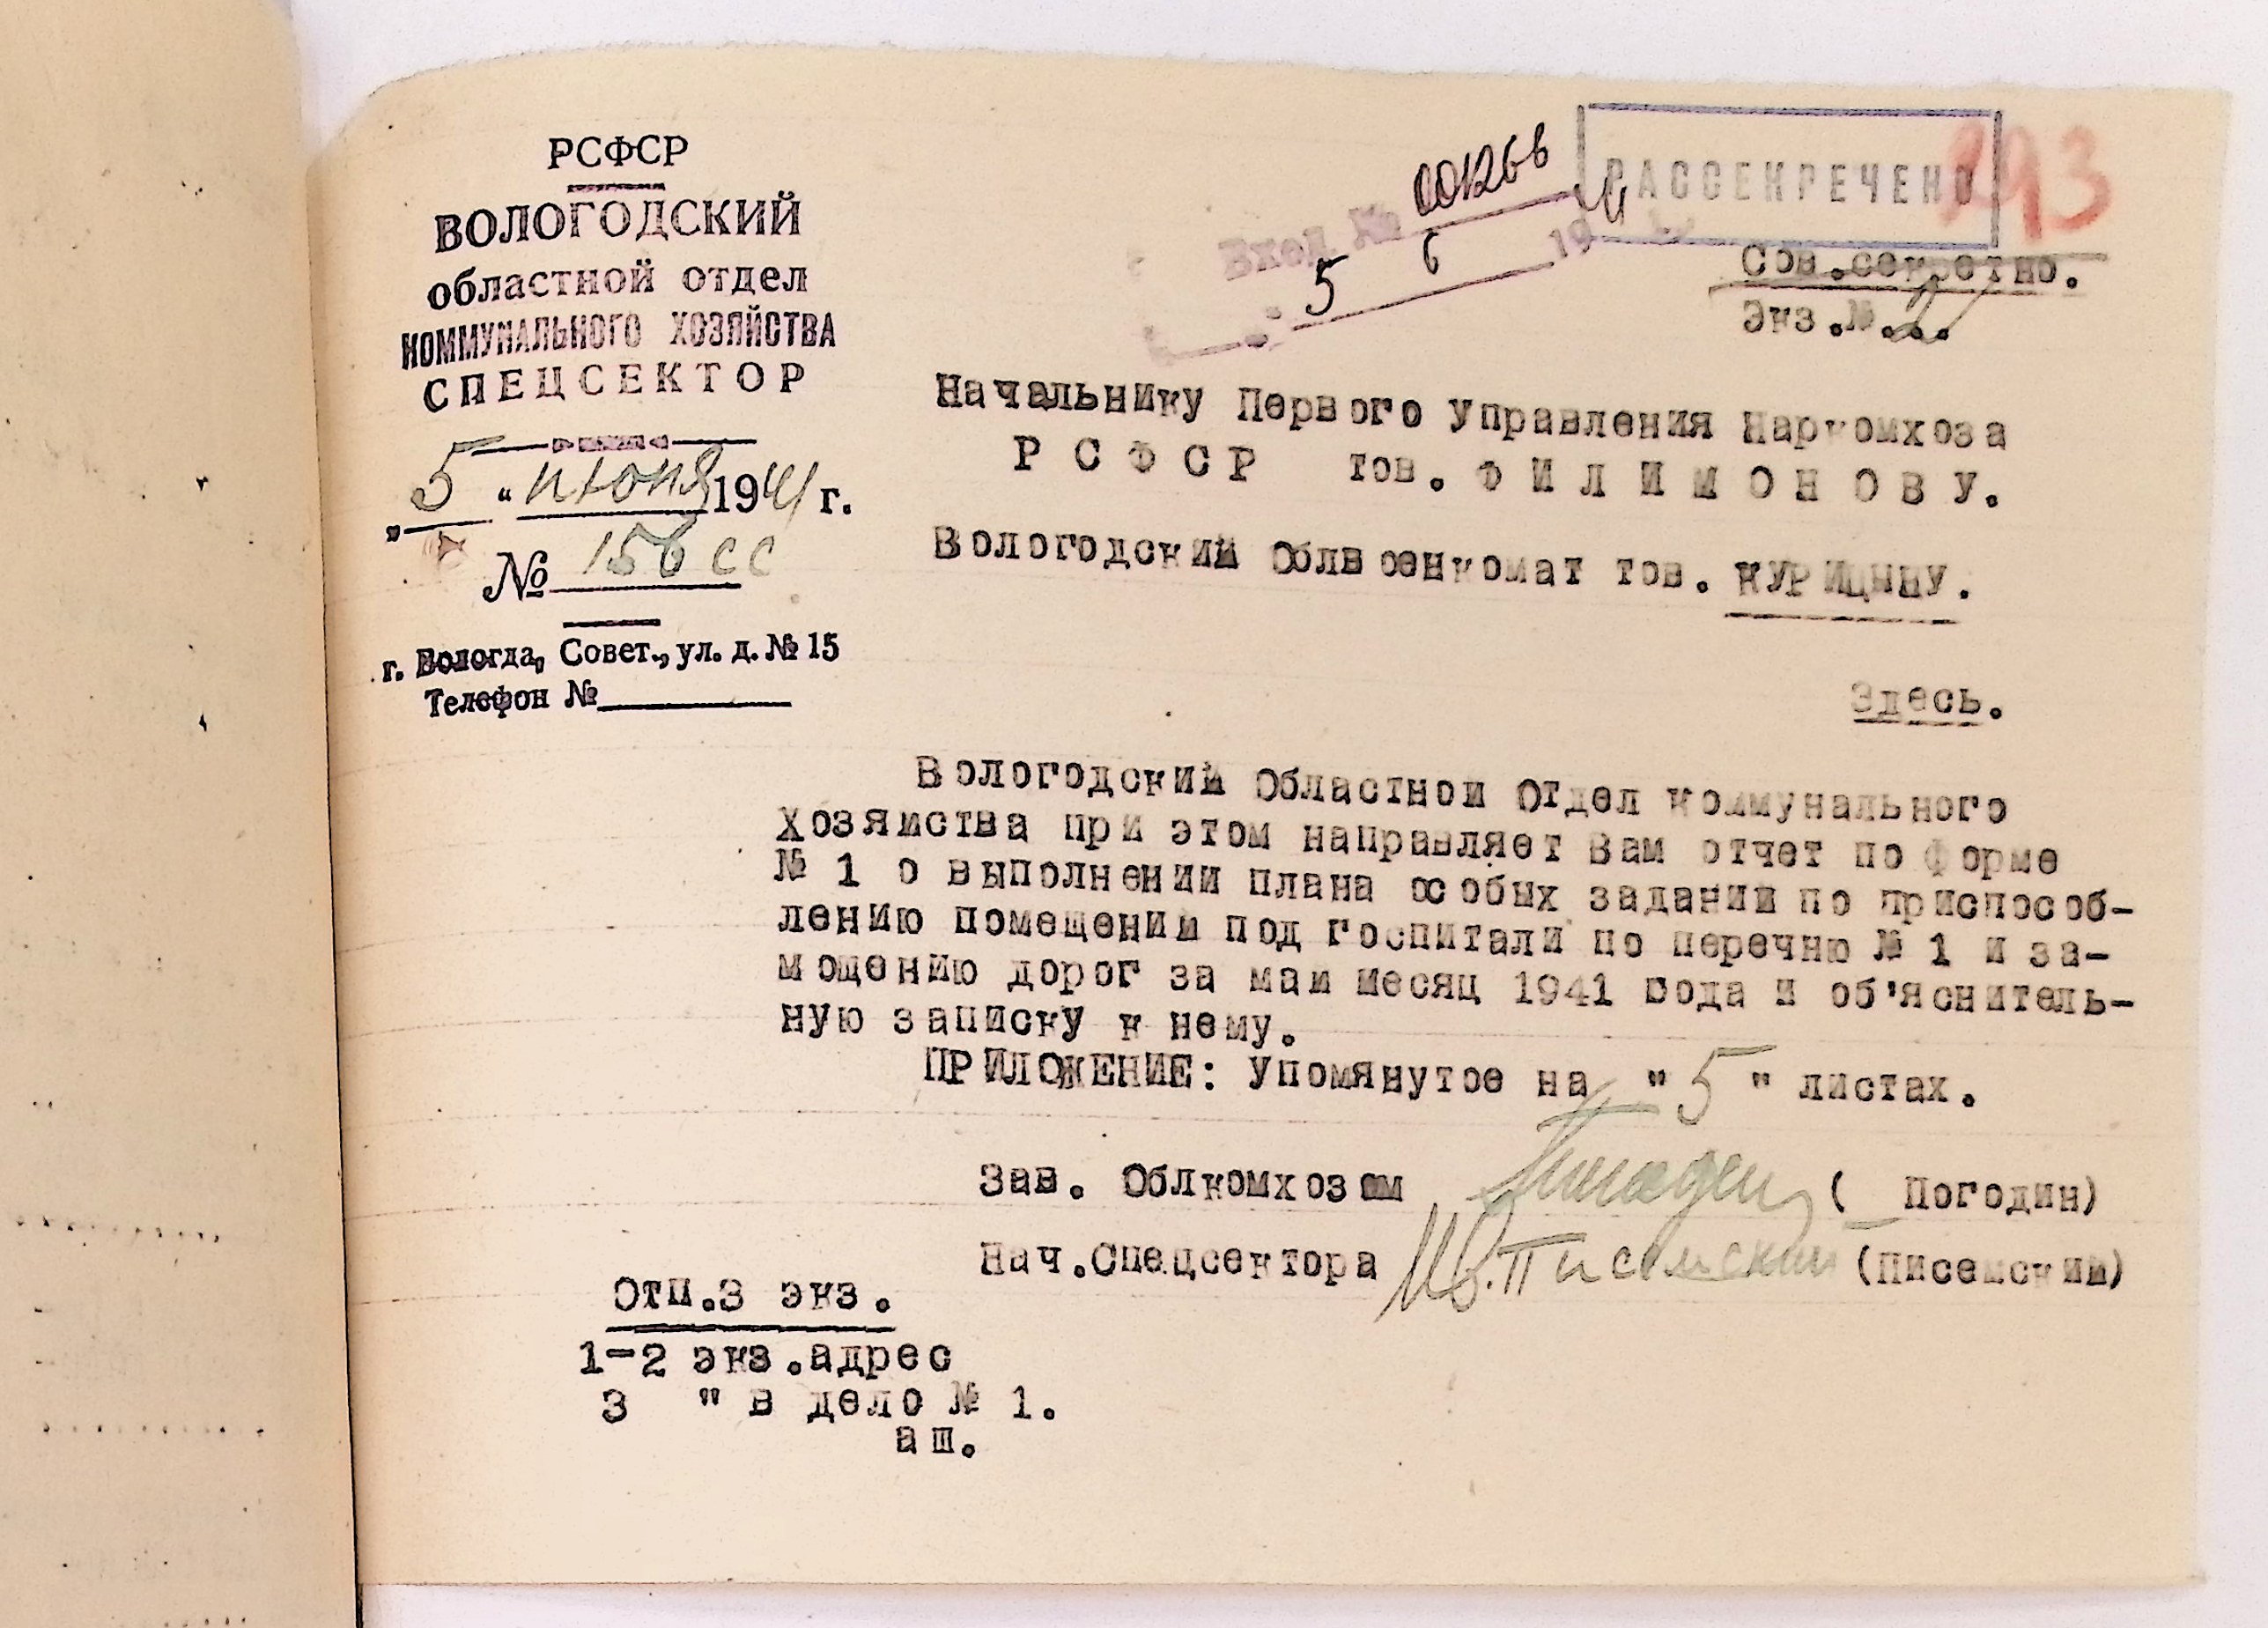 РСФСР
ВОЛОГОДСКИЙ
областной отдел
КОММУНАЛЬНОГО ХОЗЯЙСТВА
СПЕЦСЕКТОР
„ 5 “ июня 1941 г.
№ 156 сс
г. Вологда, Совет., ул. д. № 15
Телефон №
Вход №
5 6 19
РАССЕКРЕЧЕНО
93
Сов.секретно.
Экз.№...
Начальнику Первого управления Наркомхоза
Р С Ф С Р тов. Ф И Л И М О Н О В У.
Вологодский Облвоенкомат тов. КУРИЦЫНУ.
Здесь.
Вологодский Областной Отдел коммунального
хозяйства при этом направляет Вам отчет по форме
№ 1 о выполнении плана особых заданий по приспособ-
лению помещений под госпитали по перечню № 1 и за-
мощению дорог за май месяц 1941 года и об'яснитель-
ную записку к нему.
ПРИЛОЖЕНИЕ: Упомянутое на "5" листах.
Зав. Облкомхозом Погодин ( Погодин)
Нач.Спецсектора Ив.Писемский (Писемский)
Отп.3 экз.
1-2 экз.адрес
3 " в дело № 1.
аш.